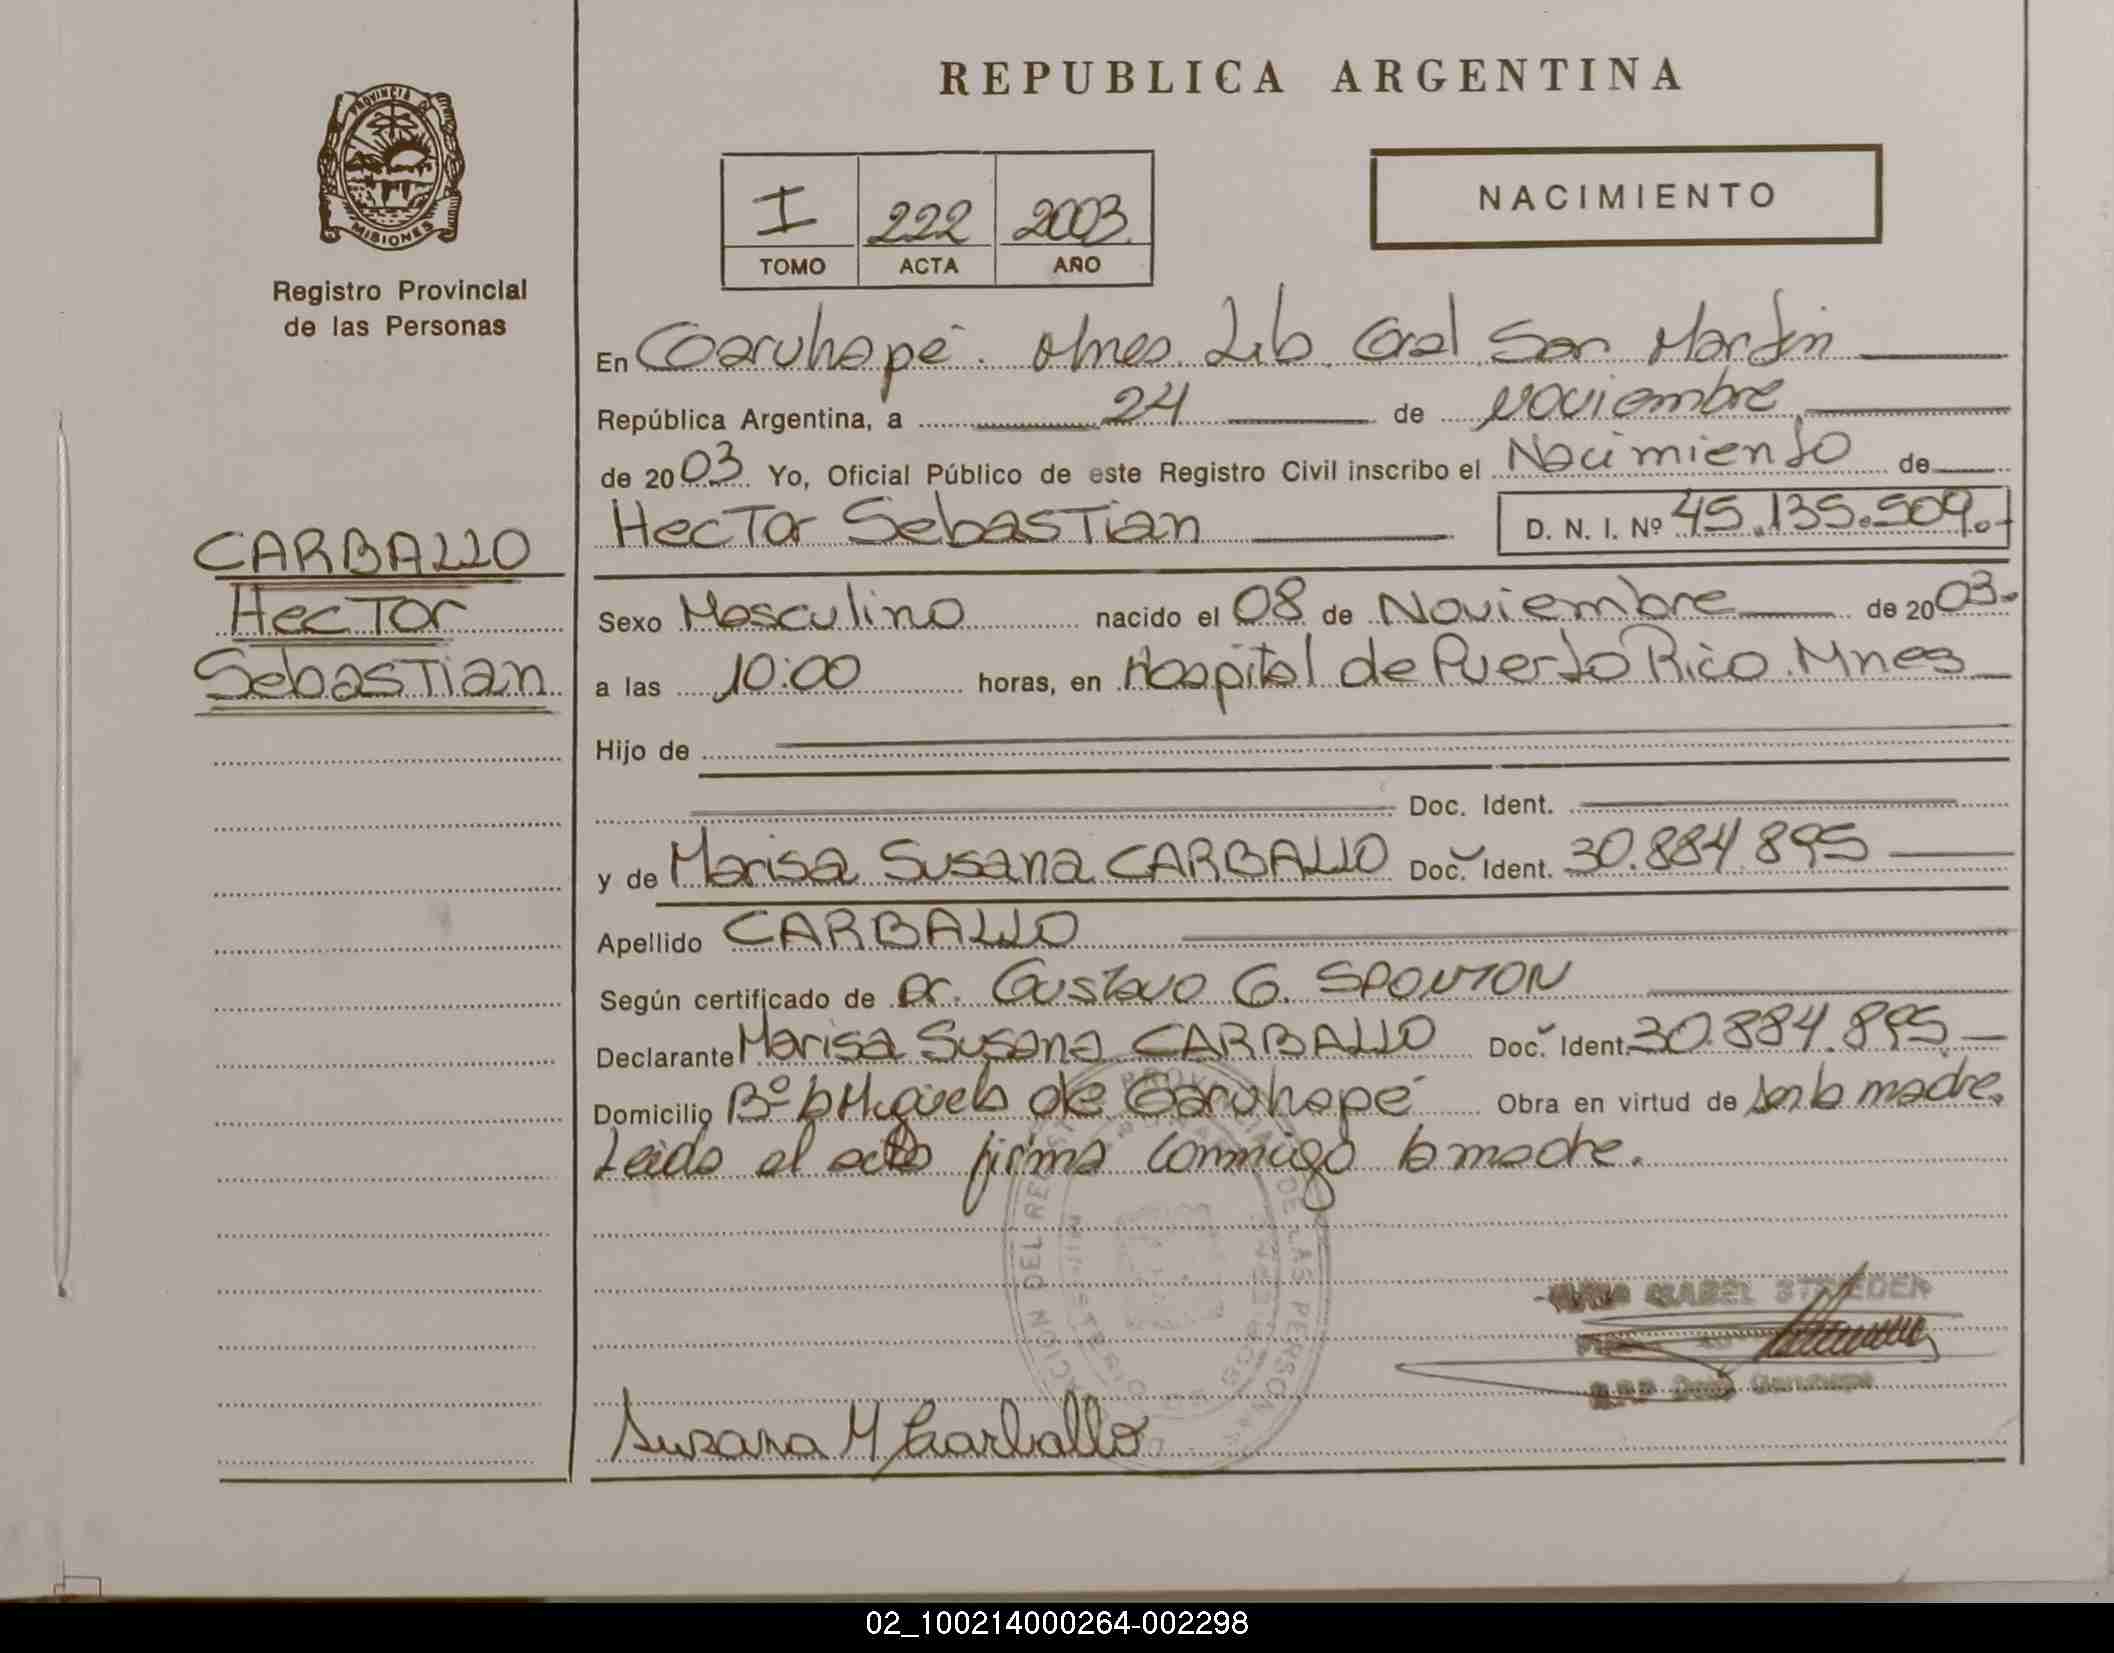 REPUBLICA ARGENTINA
PROVINCIA DE
MISIONES
Registro Provincial
de las Personas
I 222 2003
TOMO ACTA AÑO
NACIMIENTO
En Garuhapé. Mnes Lib. Gral San Martin
República Argentina, a 24 de noviembre
de 2003 Yo, Oficial Público de este Registro Civil inscribo el Nacimiento de
Hector Sebastian D. N. I. Nº 45.135.509.-
CARBALLO
Hector
Sebastian
Sexo Masculino nacido el 08 de Noviembre de 2003.
a las 10:00 horas, en Hospital de Puerto Rico. Mnes
Hijo de
Doc. Ident.
y de Marisa Susana CARBALLO Doc. Ident. 30.884.895
Apellido CARBALLO
Según certificado de Dr. Gustavo G. SPONTON
Declarante Marisa Susana CARBALLO Doc. Ident. 30.884.895
Domicilio Bº de Garuhapé Obra en virtud de ser la madre.
Leida el acta firma conmigo la madre.
ISABEL STREDER
Garuhapé
Susana M Carballo
02_100214000264-002298